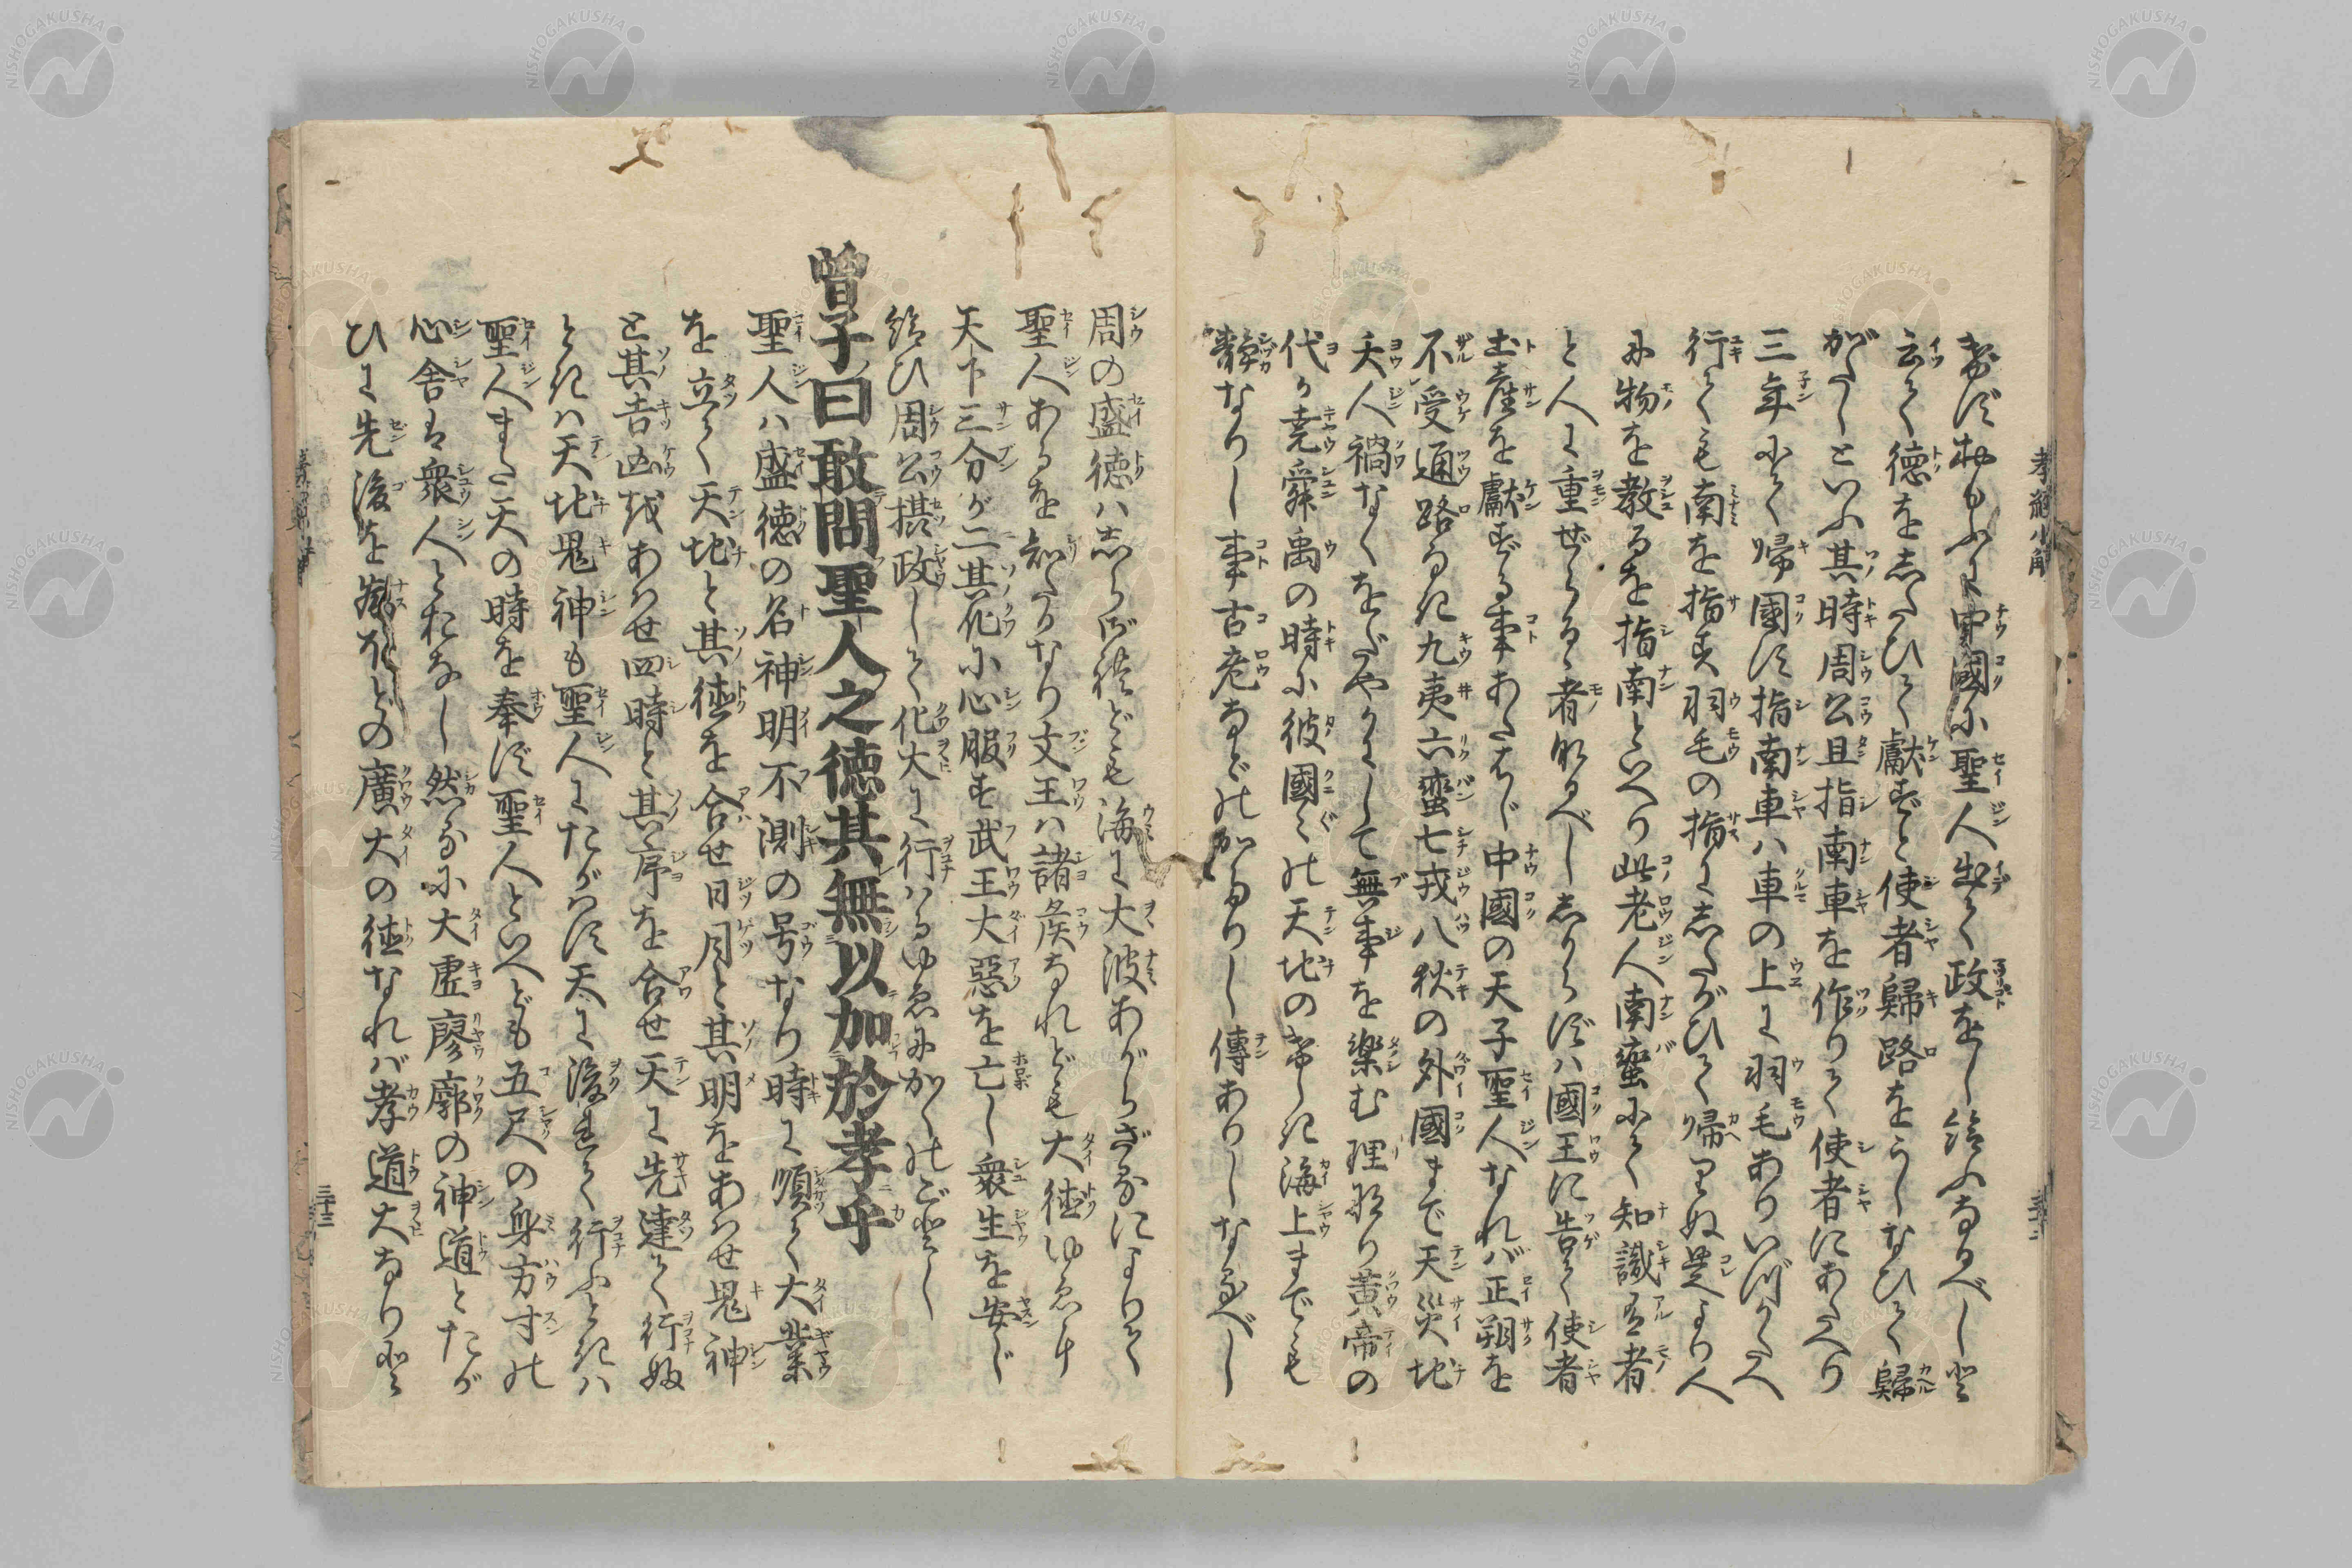 孝經小解
きずおもふに中國に聖人出て政をし給ふなるべしと
云て徳をしたひて獻ずと使者歸路をうしなひて歸
がたしといふ其時周公旦指南車を作りて使者にあたへり
三年にて帰國す指南車ハ車の上に羽毛ありいづかたへ
行ても南を指す羽毛の指にしたがひて帰りぬ是より人
に物を教るを指南といへり此老人南蛮にて知識有者
と人に重ぜらるゝ者なるべししからずハ國王に告て使者
土産を獻ずる事あたはじ中國の天子聖人なれバ正朔を
不受通路なき九夷六蛮七戎八狄の外國まで天災地
夭人禍なくをだやかにして無事を楽む理なり黄帝の
代か堯舜禹の時に彼國〻の天地のけしき海上までも
静なりし事古老などのかたりし傳ありしなるべし
周の盛徳ハしらず候ども海に大波あがらざるによりて
聖人あるを知たるなり文王ハ諸侯なれども大徳ゆゑに
天下三分が二其化に心服す武王大惡を亡し衆生を安じ
給ひ周公摂政して化大に行ハるゆゑにかくのごとし
曾子曰敢問聖人之徳其無以加於孝乎
聖人ハ盛徳の名神明不測の号なり時に順て大業
を立て天地と其徳を合せ日月と其明をあハせ鬼神
と其吉凶をあハせ四時と其序を合せ天に先達て行ぬ
ときハ天地鬼神も聖人にたがハず天に後れて行ふときハ
聖人また天の時を奉ず聖人といへども五尺の身方寸の
心舎は衆人とおなし然るに大虚寥廓の神道とたが
ひに先後をなすほどの廣大の徳なれバ孝道大なりと
三十三